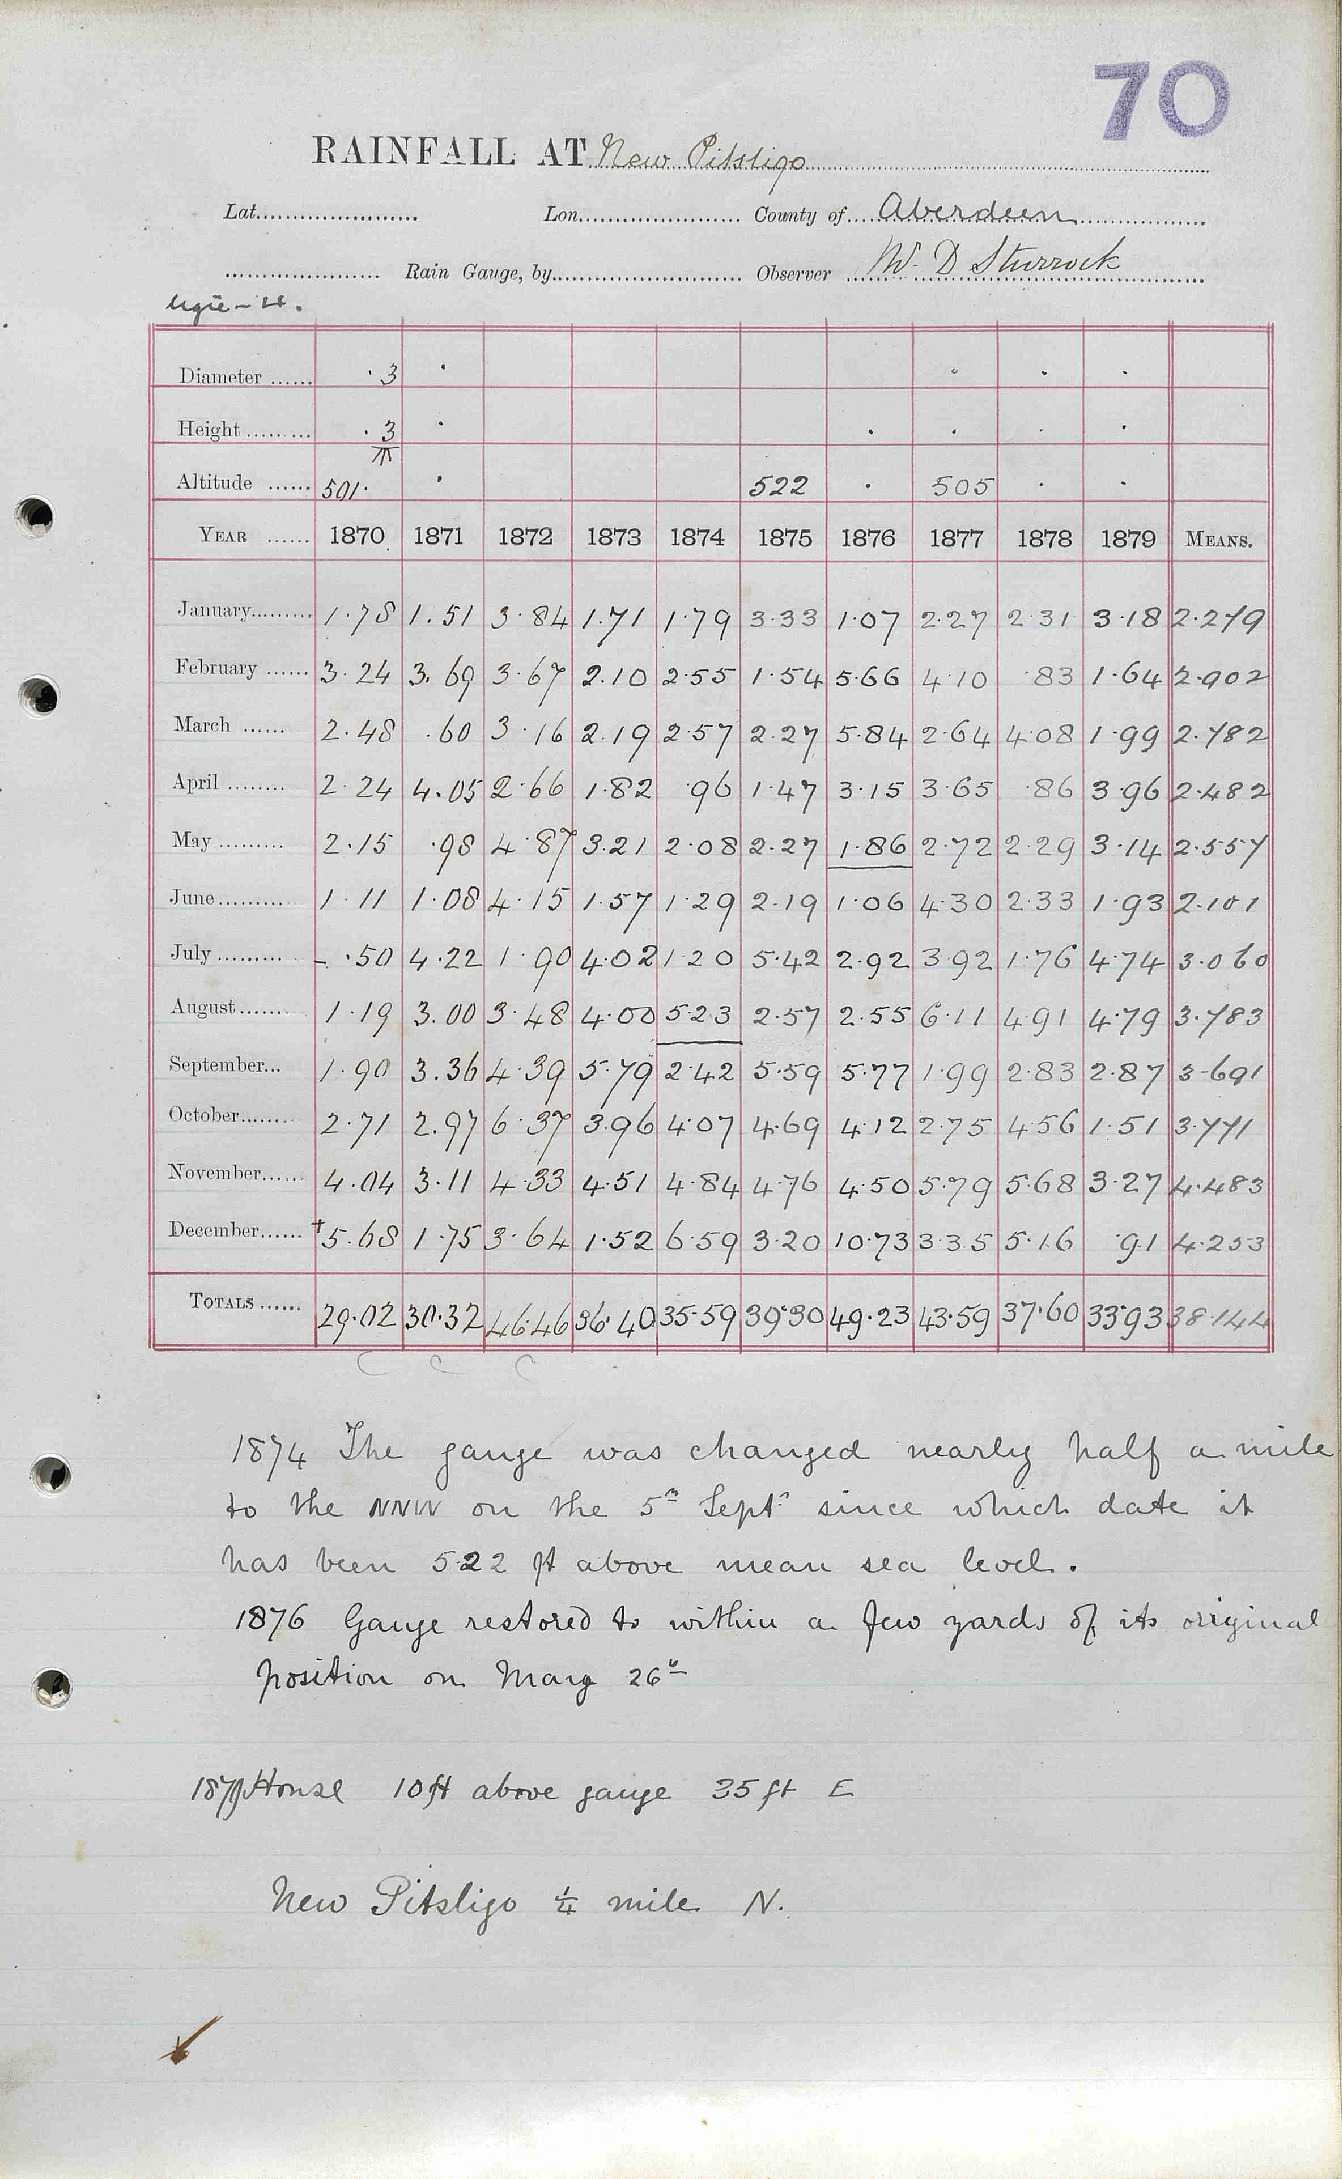 70
RAINFALL AT New Pitsligo
Lat. Lon. County of Aberdeen
Rain Gauge, by Observer W. D Sturrock
Diameter ...... ·3 · · · ·
Height ......... ·3 · · · · ·
Altitude ...... 501· · 522 · 505 · ·
YEAR ...... 1870 1871 1872 1873 1874 1875 1876 1877 1878 1879 MEANS.
January......... 1·78 1.51 3·84 1.71 1·79 3·33 1·07 2·27 2·31 3·18 2·279
February ...... 3·24 3.69 3·67 2.10 2·55 1·54 5·66 4·10 ·83 1·64 2·902
March ...... 2·48 ·60 3·16 2.19 2·57 2·27 5·84 2·64 4·08 1·99 2·782
April ......... 2·24 4.05 2·66 1·82 ·96 1·47 3·15 3·65 ·86 3·96 2·482
May ......... 2·15 ·98 4·87 3·21 2·08 2·27 1·86 2·72 2·29 3·14 2·557
June............ 1·11 1·08 4·15 1·57 1·29 2·19 1·06 4·30 2·33 1·93 2·101
July ............ ·50 4·22 1·90 4·02 1·20 5·42 2·92 3·92 1·76 4·74 3·060
August......... 1·19 3.00 3·48 4·00 5·23 2·57 2·55 6·11 4·91 4·79 3·783
September... 1·90 3.36 4·39 5·79 2·42 5·59 5·77 1·99 2·83 2·87 3·691
October........ 2·71 2.97 6·37 3·96 4·07 4·69 4·12 2·75 4·56 1·51 3·771
November...... 4·04 3·11 4·33 4·51 4·84 4·76 4·50 5·79 5·68 3·27 4·483
December...... †5·68 1·75 3·64 1·52 6·59 3·20 10·73 3·35 5·16 ·91 4·253
TOTALS ...... 29·02 30·32 46·46 36·40 35·59 39·30 49·23 43·59 37·60 33·93 38·144
1874 The gauge was changed nearly half a mile
to the NNW on the 5th Sept. since which date it
has been 522 ft above mean sea level.
1876 Gauge restored to within a few yards of its original
position on May 26th
1879 House 10ft above gauge 35 ft E
New Pitsligo ¼ mile N.